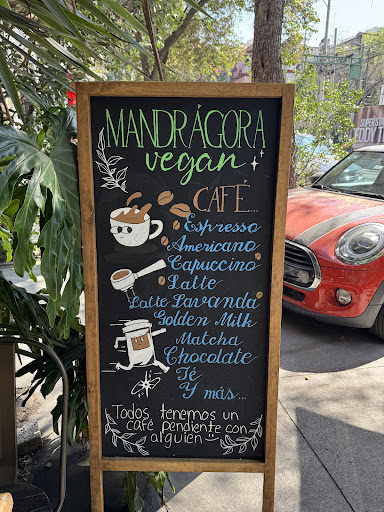 MANDRÁGORA
vegan
CAFÉ...
Espresso
Americano
Capuccino
Latte
Latte Lavanda
Golden Milk
Matcha
Chocolate
Té
Y más...
Todos tenemos un
café pendiente con
alguien